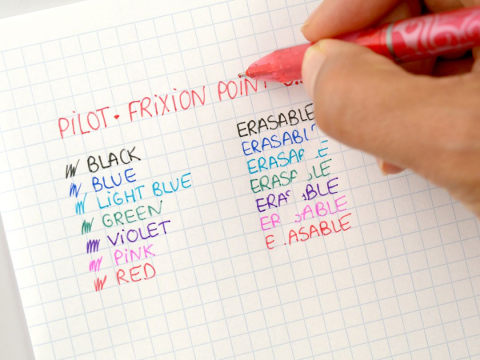 PiLOT • FRIXION POINT
BLACK
BLUE
LIGHT BLUE
GREEN
ViOLET
PiNK
RED
ERASABLE
ERASABLE
ERASABLE
ERASABLE
ERASABLE
ERASABLE
ERASABLE